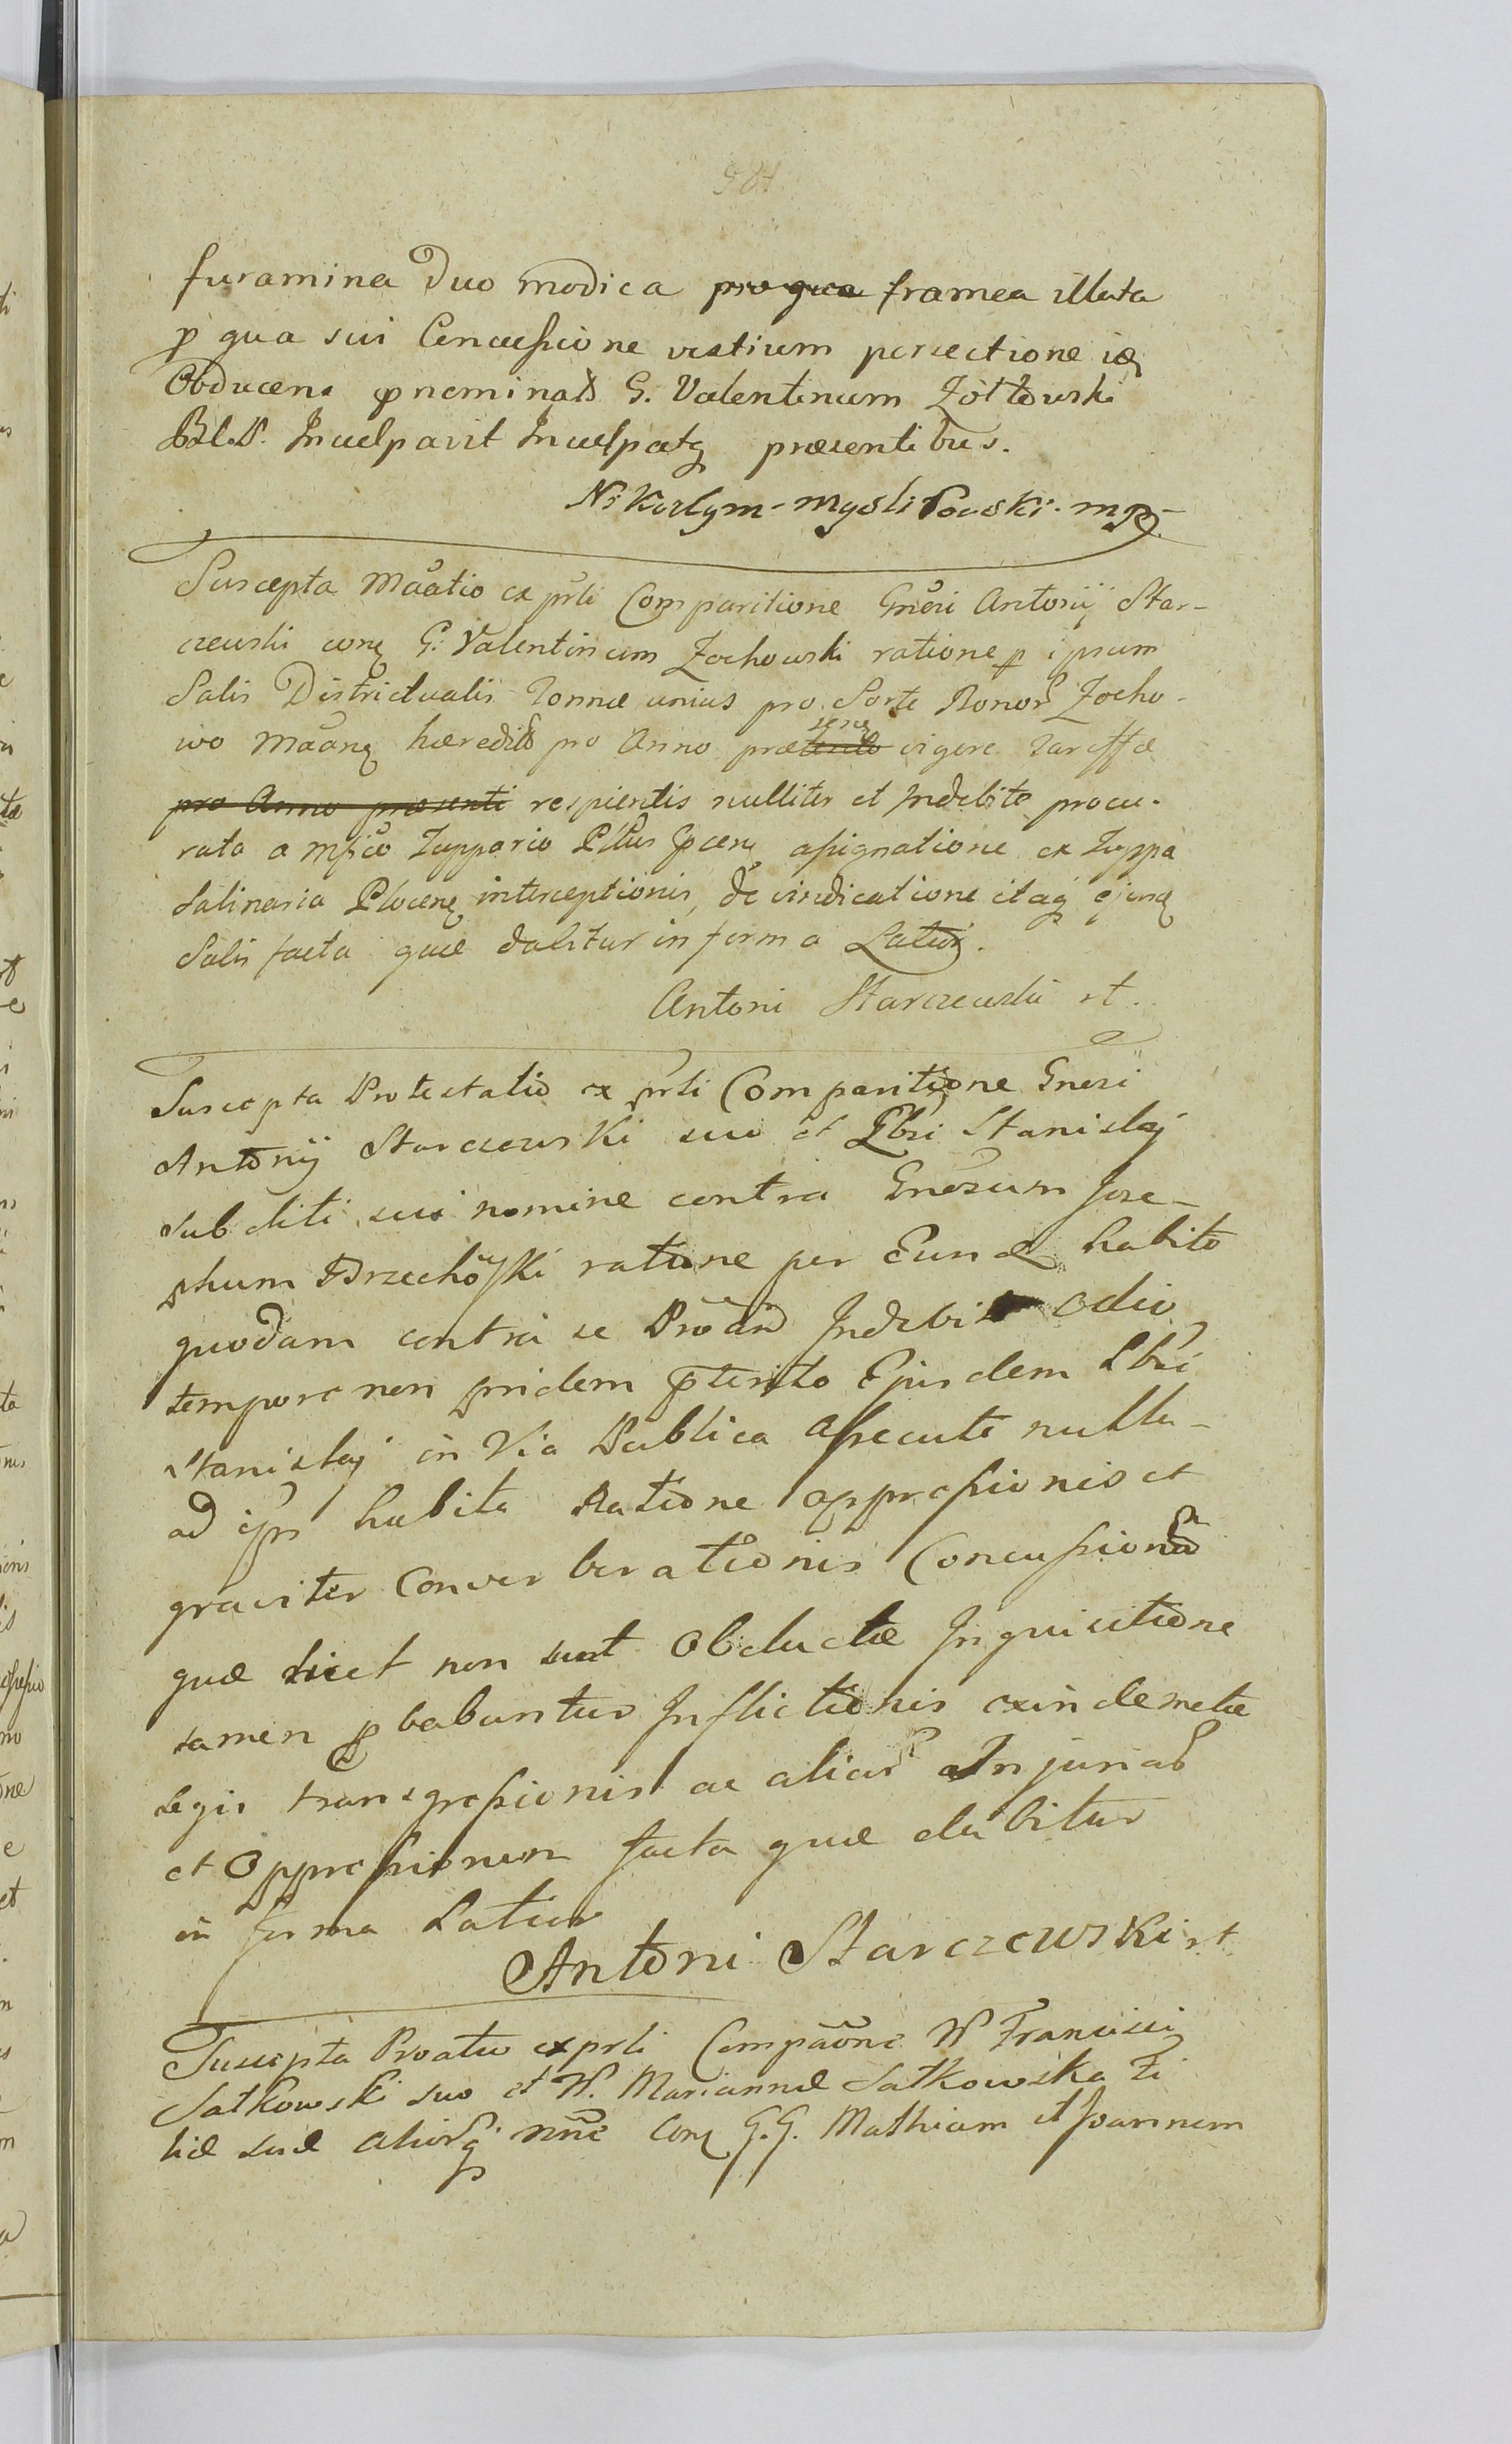 furamina duo modica pro qua framea illata
p qua sui Concussione vestium persectione idq
Obducens pnominatũ G. Valentinum Żółtowski
Inculpavit Inculpatq præsentibus.
Suscepta Mãatio ex prñli Comparitione Gnẽri Antonij Star-
czewski conq G: Valentinum Zochowski ratione p ipsum
Salis Districtualis Tonnæ unius pro Sorte Bonorꝫ Zocho-
wo Mãanq hæreditꝫ pro Anno prætento senq vigore Tariffæ
pro Anno præsenti respicientis nulliter et Indebite procu-
rata a Mfico Zuppario Plocenq assignatione ex Zuppa
Salinaria Plocenq interceptionis, de vindicatione itaq ejusq
Salis facta quæ dabitur in forma Latiori.
Antoni Starczewski st.
Suscepta Protestatio ex prñli Comparitione Gneri
Antonij Starczewski suo et Lbri Stanislaj
subditi sui nomine contra Gnẽrsum Jose-
phum Brzechõfski ratione per Eund habito
quodam contra se Prõañ Indebite odio
tempore non pridem pterito Ejusdem Lbri
Stanislaj in Via Publica Assecuti nulla-
ad ips habita Ratione oppressionis et
graviter Converberationis Concussionũ
quæ licet non sunt Obductæ Inquisitione
tamen pbabuntur Inflictionis exindemetæ
legis transgressionis ac aliarꝫ Injuriarꝫ
et Oppressionum facta quæ dabitur
in forma Latiori
Antoni Starczewski st
Suscepta Proatio ex prñli Compãõne W Francisci
Satkowski suo et W. Mariannæ Satkowska Fi
liæ suæ aliorꝫq nñe Conq G.G. Mathiam et Joannem